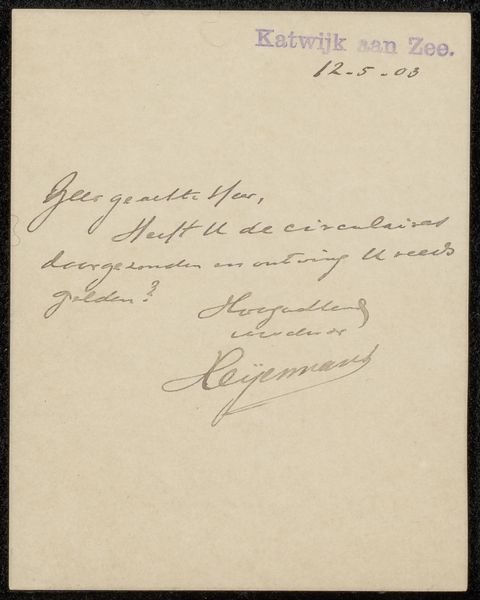 Katwijk aan Zee.
12-5-03
Zeer geachte Heer,
Heeft U de circulaires
doorgezonden en ontving U reeds
gelden?
Hoogachtend
Heijermans